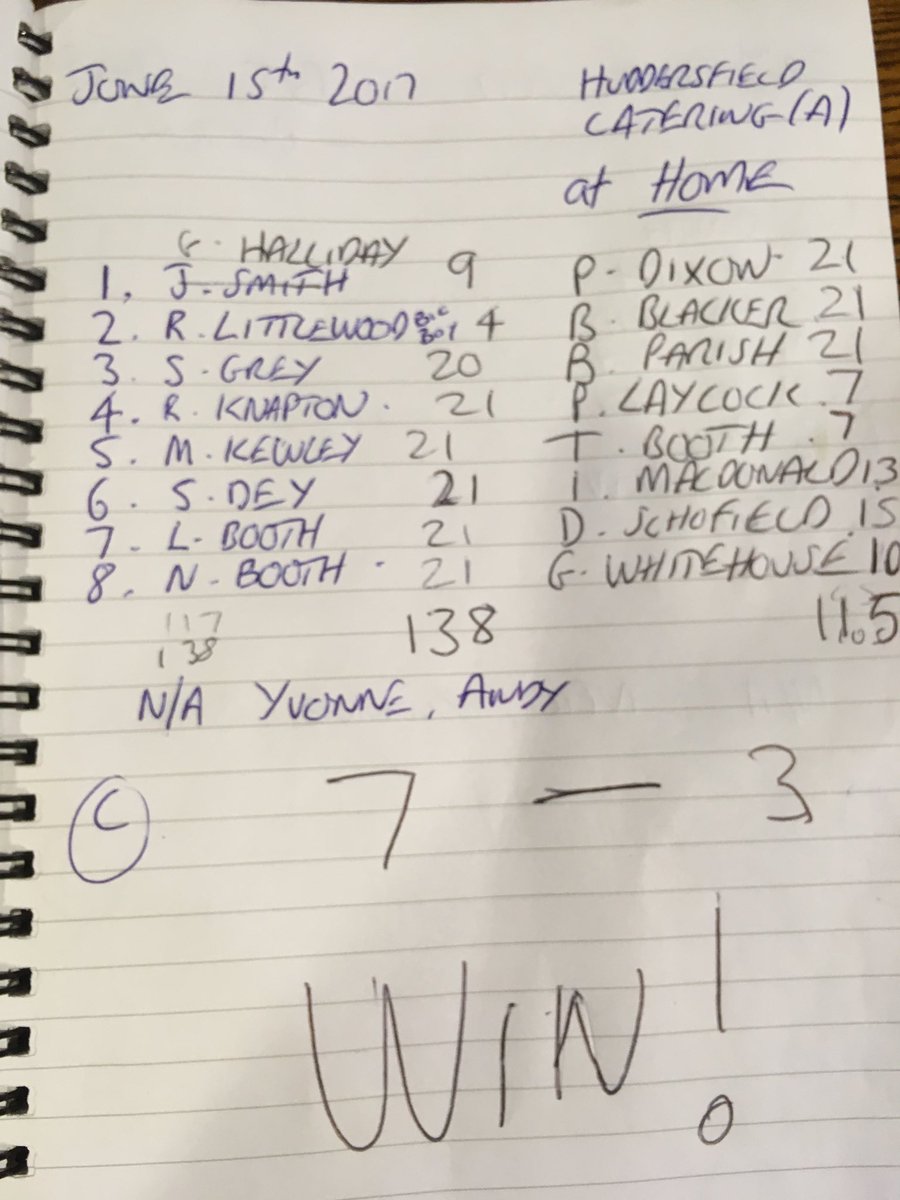 JUNE 15th 2017 HUDDERSFIELD
CATERING (A)
at HOME
G. HALLIDAY
1. J. SMITH 9 P. DIXON 21
2. R. LITTLEWOOD 4 B. BLACKER 21
3. S. GREY 20 B. PARISH 21
4. R. KNAPTON. 21 P. LAYCOCK. 7
5. M. KEWLEY 21 T. BOOTH. 7
6. S. DEY 21 I. MACDONALD 13
7. L. BOOTH 21 D. SCHOFIELD. 15
8. N. BOOTH. 21 G. WHITEHOUSE 10
117
138 138 115
N/A YVONNE, ANDY
C 7 — 3
WIN!